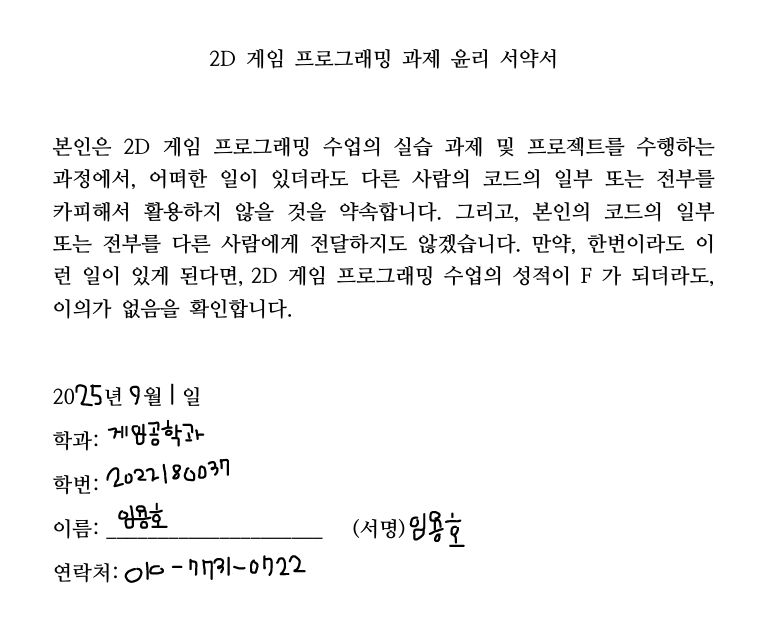 2D 게임 프로그래밍 과제 윤리 서약서
본인은 2D 게임 프로그래밍 수업의 실습 과제 및 프로젝트를 수행하는
과정에서, 어떠한 일이 있더라도 다른 사람의 코드의 일부 또는 전부를
카피해서 활용하지 않을 것을 약속합니다. 그리고, 본인의 코드의 일부
또는 전부를 다른 사람에게 전달하지도 않겠습니다. 만약, 한번이라도 이
런 일이 있게 된다면, 2D 게임 프로그래밍 수업의 성적이 F 가 되더라도,
이의가 없음을 확인합니다.
2025년 9월 1일
학과: 게임공학과
학번: 2022180037
이름: 임용호 (서명) 임용호
연락처: 010-7731-0722